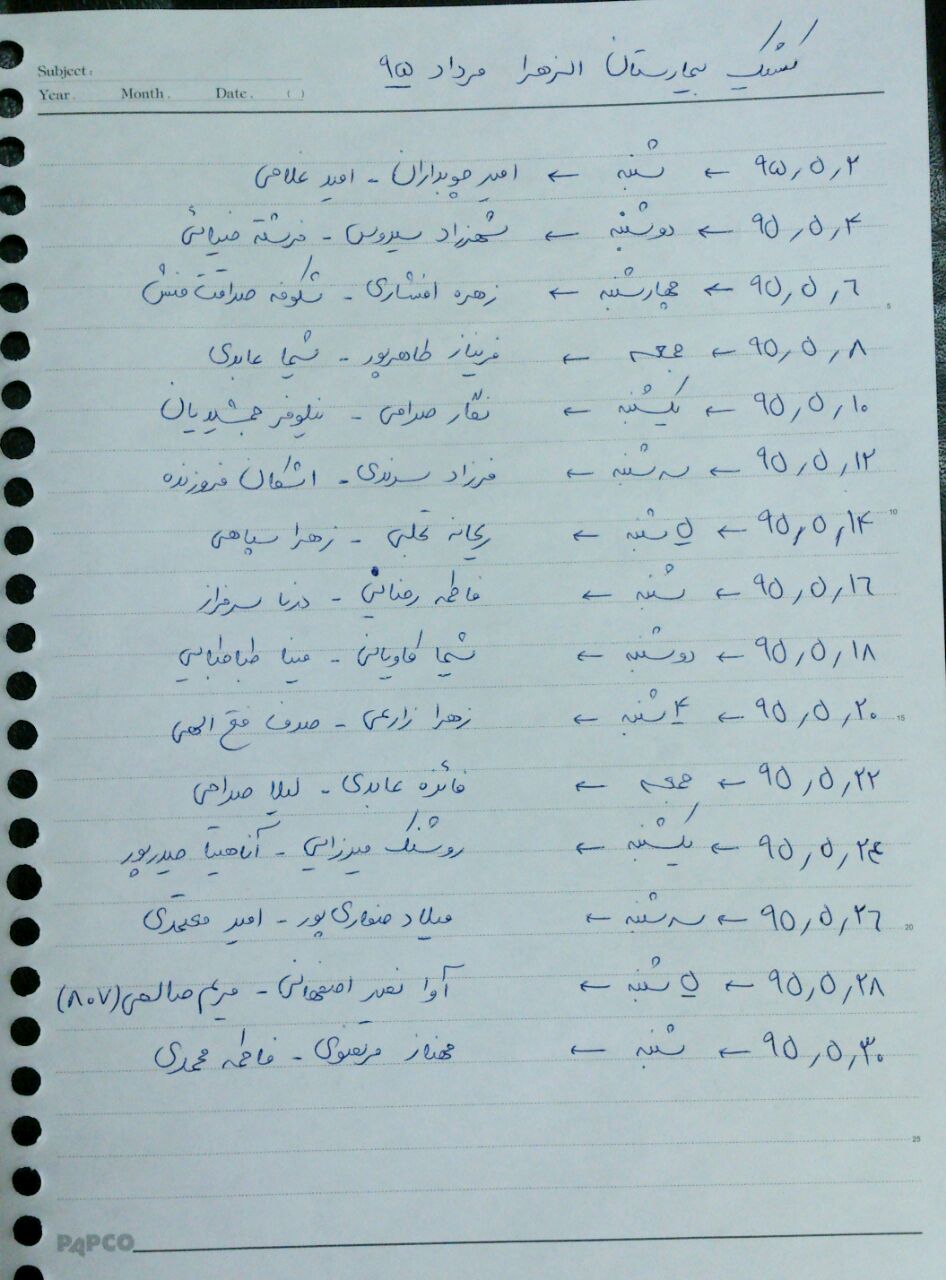 کشیک بیمارستان الزهرا مرداد ۹۵
Subject:
Year. Month. Date. ( )
۹۵٫۵٫۲ ← شنبه ← امیر چوبداران - امید غلامی
۹۵٫۵٫۴ ← دوشنبه ← شهرزاد سیروس - فرشته ضیائی
۹۵٫۵٫۶ ← چهارشنبه ← زهره افشاری - شکوفه صداقت منش
5
۹۵٫۵٫۸ ← جمعه ← فریناز طاهرپور - شیما عابدی
۹۵٫۵٫۱۰ ← یکشنبه ← نگار صدامی - نیلوفر جمشیدیان
۹۵٫۵٫۱۲ ← سه شنبه ← فرزاد - اشکان فروزنده
10
۹۵٫۵٫۱۴ ← ۵ شنبه ← ریحانه تجلی - زهرا سپاهی
۹۵٫۵٫۱۶ ← شنبه ← فاطمه رضائی - درنا سرفراز
۹۵٫۵٫۱۸ ← دوشنبه ← شیما کاویانی - مینا طباطبائی
15
۹۵٫۵٫۲۰ ← ۴ شنبه ← زهرا زارعی - صدف فتح الهی
۹۵٫۵٫۲۲ ← جمعه ← فائزه عابدی - لیلا
۹۵٫۵٫۲۴ ← یکشنبه ← روشنک میرزایی - آناهیتا حیدرپور
۹۵٫۵٫۲۶ ← سه شنبه ← میلاد - امید معتمدی
20
۹۵٫۵٫۲۸ ← ۵ شنبه ← آوا نصر اصفهانی - مریم صالحی (۸۰۷)
۹۵٫۵٫۳۰ ← شنبه ← مهناز مرتضوی - فاطمه محمدی
25
PAPCO